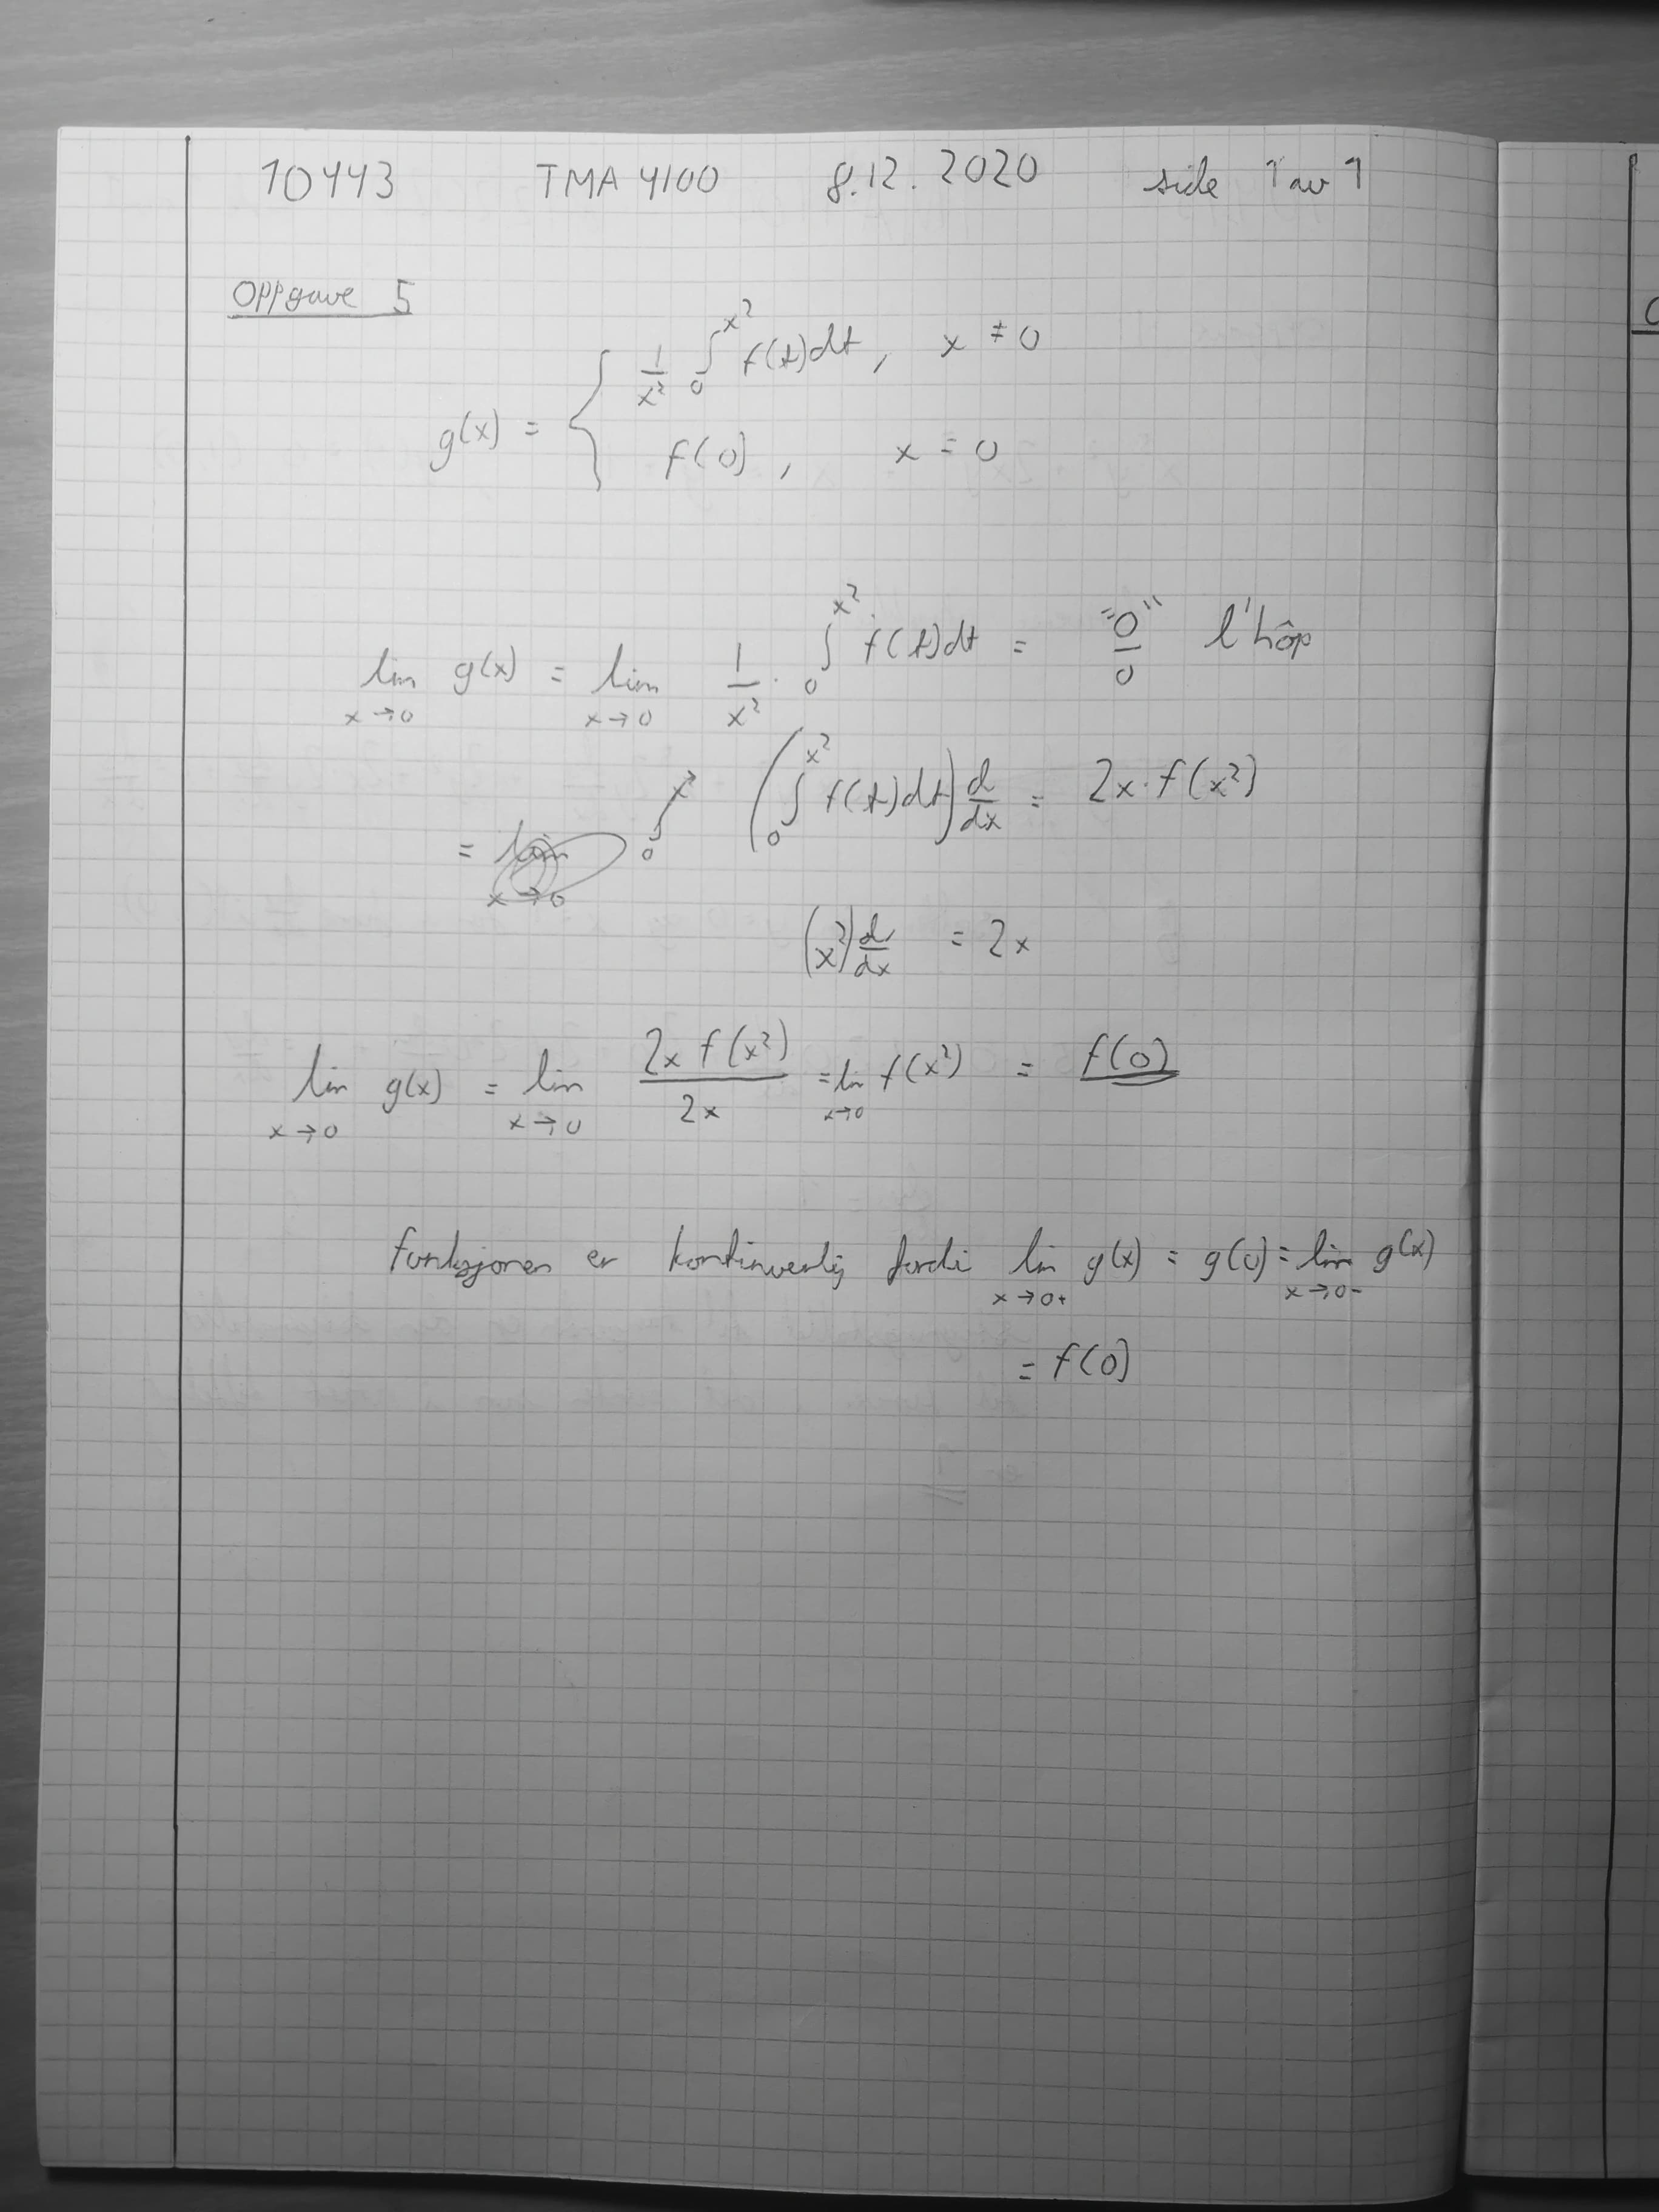 10443 TMA 4100 8.12.2020 side 1 av 1
Oppgave 5
g(x) = { 1/x² ∫₀^x² f(t)dt, x ≠ 0
f(0), x = 0
lim x→0 g(x) = lim x→0 1/x² · ∫₀^x² f(t)dt = "0"/0 l'hôp
= (∫₀^x² f(t)dt) d/dx = 2x·f(x²)
(x²) d/dx = 2x
lim x→0 g(x) = lim x→0 2x f(x²)/2x = lim x→0 f(x²) = f(0)
funksjonen er kontinuerlig fordi lim x→0+ g(x) = g(0) = lim x→0- g(x)
= f(0)